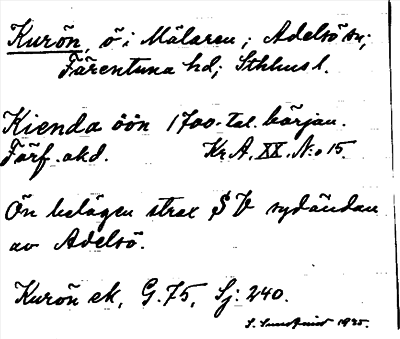 Kurön, ö i Mälaren; Adelsö sn;
Färentuna hd; Sthlms l.
Kienda öön 1700-tal. början.
Förf. okd. Kr.A. XX. N:o 15.
Ön belägen strax SV sydändan
av Adelsö.
Kurön ek, G. 75, Sj: 240.
S. Sundqvist 1935.